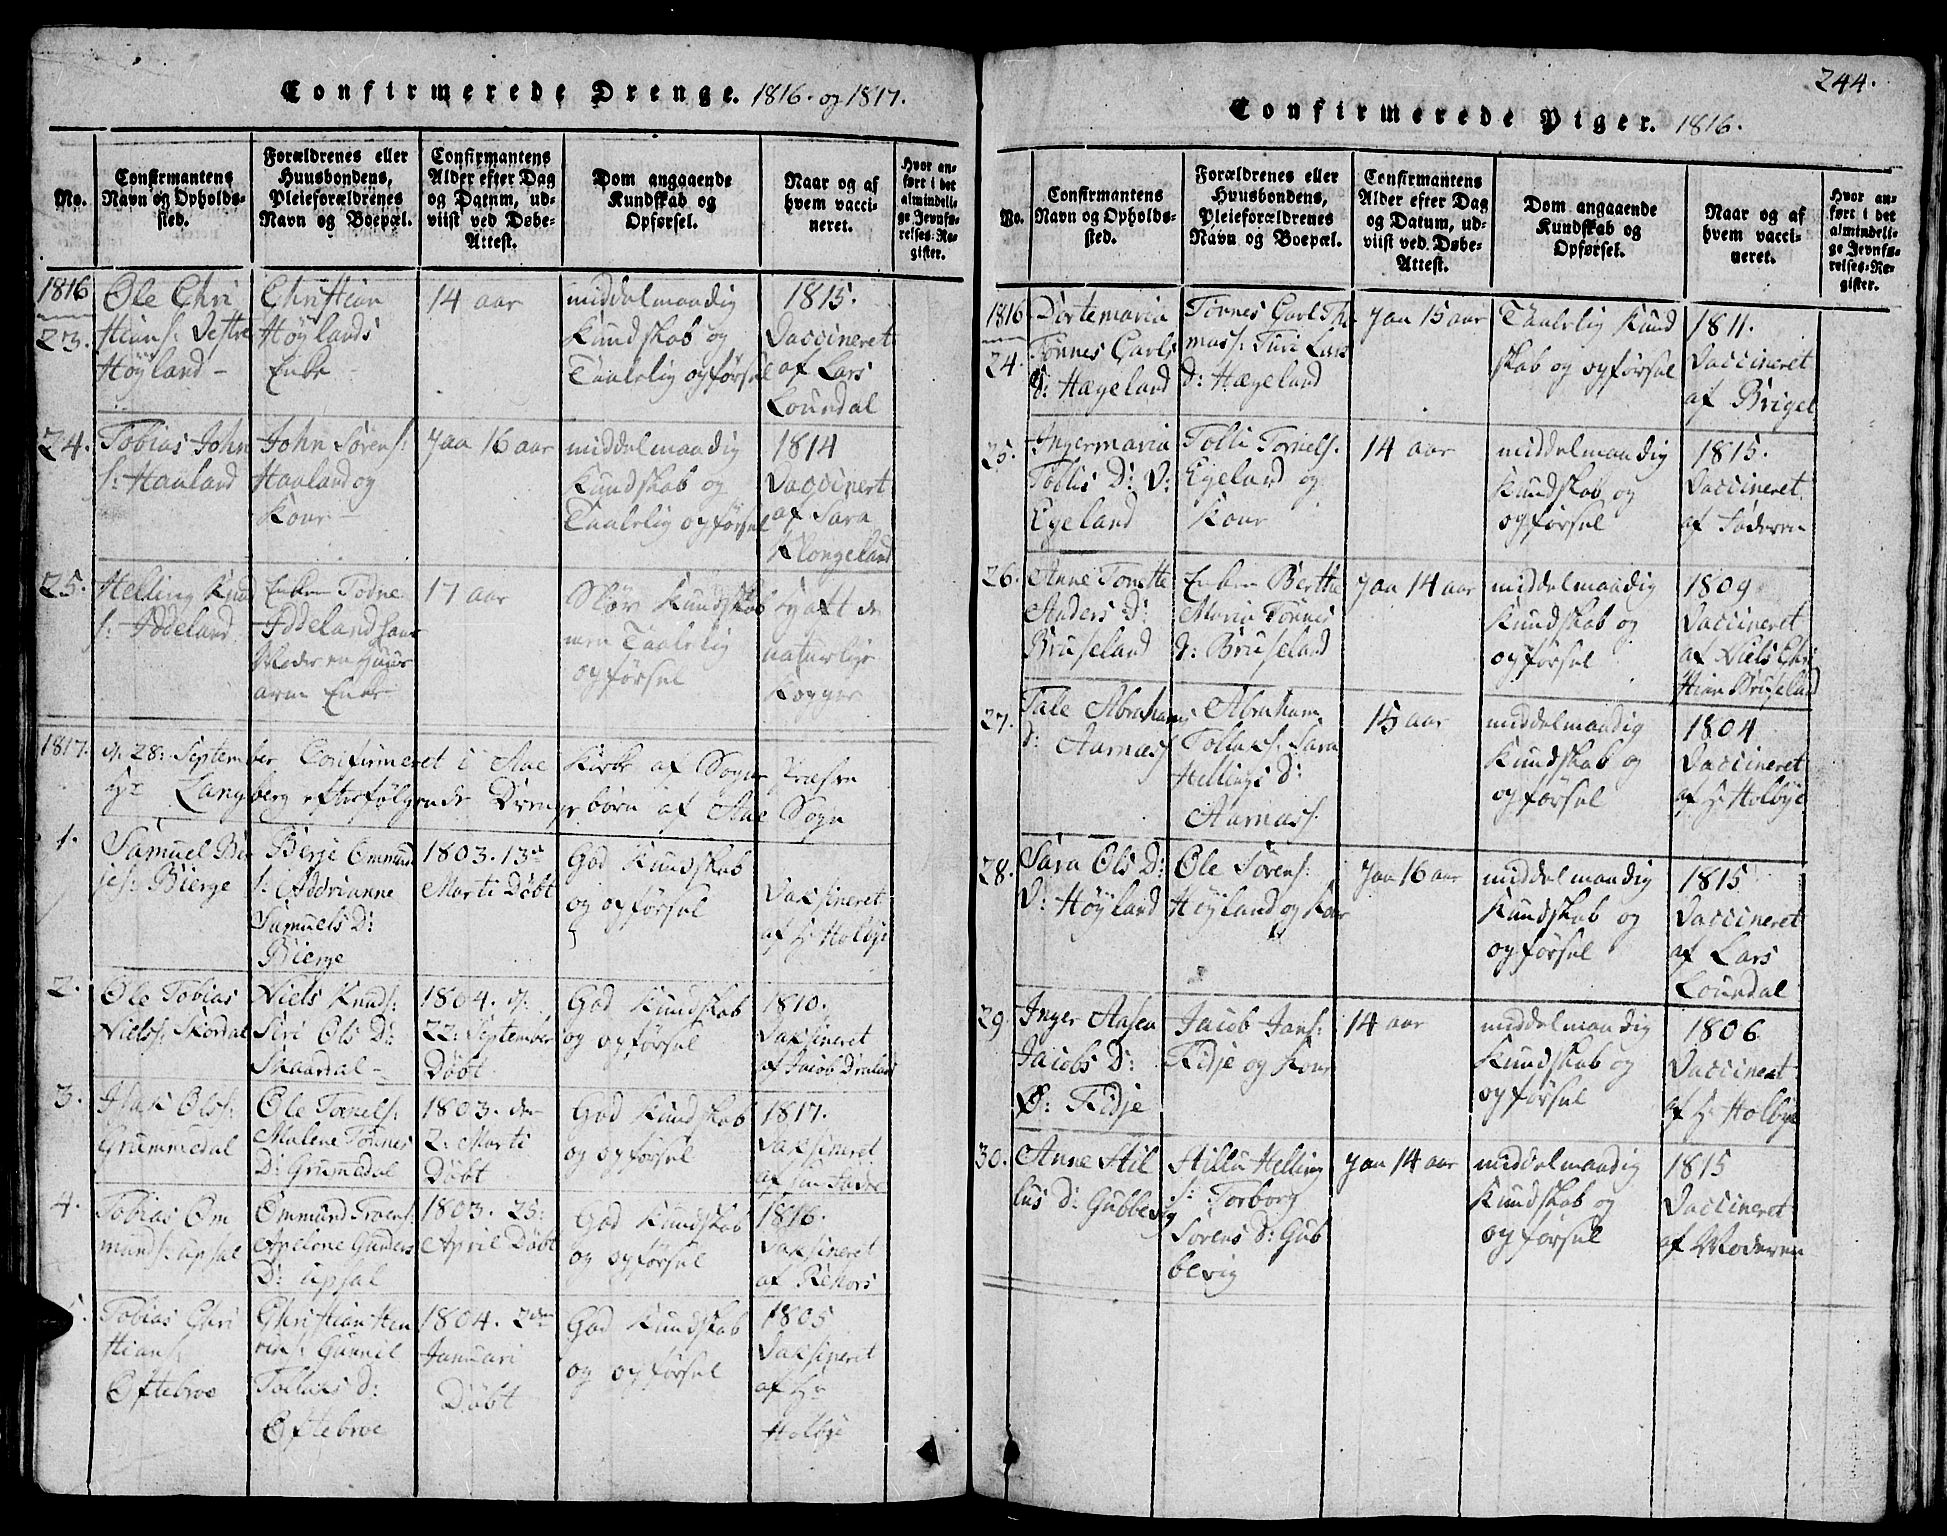 Confirmerede Drenge. 1816. og 1817.
No.
Confirmantens
Navn og Opholds-
sted.
Forældrenes eller
Huusbondens,
Pleieforældrenes
Navn og Boepæl.
Confirmantens
Alder efter Dag
og Datum, ud-
viist ved Døbe-
Attest.
Dom angaaende
Kundskab og
Opførsel.
Naar og af
hvem vacci-
neret.
Hvor an-
ført i det
almindeli-
ge Jevnfø-
relses-Re-
gister.
1816
23.
Ole Chri
stians: Vestre
Höyland -
Christian
Höylands
Enke -
14 aar
middelmaadig
Kundskab og
Taalelig opførsel
1815.
Vaccineret
af Lars
Loundal
24.
Tobias John
s: Haaland
John Sörens:
Haaland og
Kone
Jaa 16 aar
middelmaadig
Kundskab og
Taalelig opførsel
1814
Vaccinert
af Sara
Klongeland
25.
Helling Knud
s: Iddeland
Enken Todne
Iddeland
Moderen
arm Enke
17 aar
Slöv Kundskab
men Taalelig
opførsel
havt de
naturlige
Kopper
1817. d. 28: September Confirmeret i Aae Kirke af Sogne Præsten
Hr Langberg efterfølgende Drenge börn af Aae Sogn
1.
Samuel Bir
jes: Bierge
Birje Ommund
s: Addrianne
Samuels D:
Bierge
1803. 13de
Marti Döbt
God Kundskab
og opførsel
Vaksineret
af Hr Holbye
2.
Ole Tobias
Niels: Skordal
Niels Knuds:
Siri Ols D:
Skaardal -
1804. d:
22: September
Döbt
God Kundskab
og opførsel
1810.
Vaksineret
af Jacob
3.
Isak Ols:
Grummedal
Ole Tornels:
Malene Tönnes
D: Grumedal
1803. den
2: Marti
Döbt
God Kundskab
og opførsel
1817.
Vaksineret
af sin Fader
4.
Tobias Om
munds: Upsal
Ommund Troens:
Apelone Gunders
D: Upsal
1803. 25:
April Döbt
God Kundskab
og opførsel
1816.
Vaksineret
af Rektors
5.
Tobias Chri
stians:
Oftebroe
Christian Hen
rik: Gunnil
Tollaks D:
Oftebroe
1804. 2den
Januari
Döbt
God Kundskab
og opførsel
1805
Vaksineret
af Hr
Holbye
244.
Confirmerede Piger. 1816.
No.
Confirmantens
Navn og Opholds-
sted.
Forældrenes eller
Huusbondens,
Pleieforældrenes
Navn og Boepæl.
Confirmantens
Alder efter Dag
og Datum, ud-
viist ved Døbe-
Attest.
Dom angaaende
Kundskab og
Opførsel.
Naar og af
hvem vacci-
neret.
Hvor an-
ført i det
almindeli-
ge Jevnfø-
relses-Re-
gister.
1816
24.
Dortemaria
Tönnes Carls
D: Hægeland
Tönnes Carl Tho
mass: Turi Lars
D: Hægeland
Jaa 15 aar
Taalelig Kund
skab og opførsel
1811.
Vaccineret
af Briget
25.
Ingermaria
Tollis D: V:
Egeland
Tolli Tornels:
Egeland og
Kone
14 aar
middelmaadig
Kundskab og
opførsel
1815.
Vaccineret
af Faderen
26.
Anne Tonette
Anders D:
Bruseland
Enken Berthe
Maria Tönnes
D: Bruseland
Jaa 14 aar
middelmaadig
Kundskab og
opførsel
1809
Vaccineret
af Niels Chri
stian Bruseland
27.
Tale Abrahams
D: Aarnæs
Abraham
Tollaks: Sara
Hellings D:
Aarnæs
15 aar
middelmaadig
Kundskab og
opførsel
1804
Vaccineret
af Hr Holbye
28.
Sara Ols D:
V: Höyland
Ole Sörens:
Höyland og Kone
Jaa 16 aar
middelmaadig
Kundskab og
opførsel
1815
Vaccineret
af Lars
Loundal
29.
Inger Aasen
Jacobs D:
Ø: Kidje
Jacob Jans:
Kidje og Kone
14 aar
middelmaadig
Kundskab og
opførsel
1806
Vaccineret
af Hr Holbye
30.
Anne Stil
lus D: Gubbevig
Stillu Helling
s: Torborg
Sörens D: Gub
bevig
Jaa 14 aar
middelmaadig
Kundskab og
opførsel
1815
Vaccineret
af Moderen